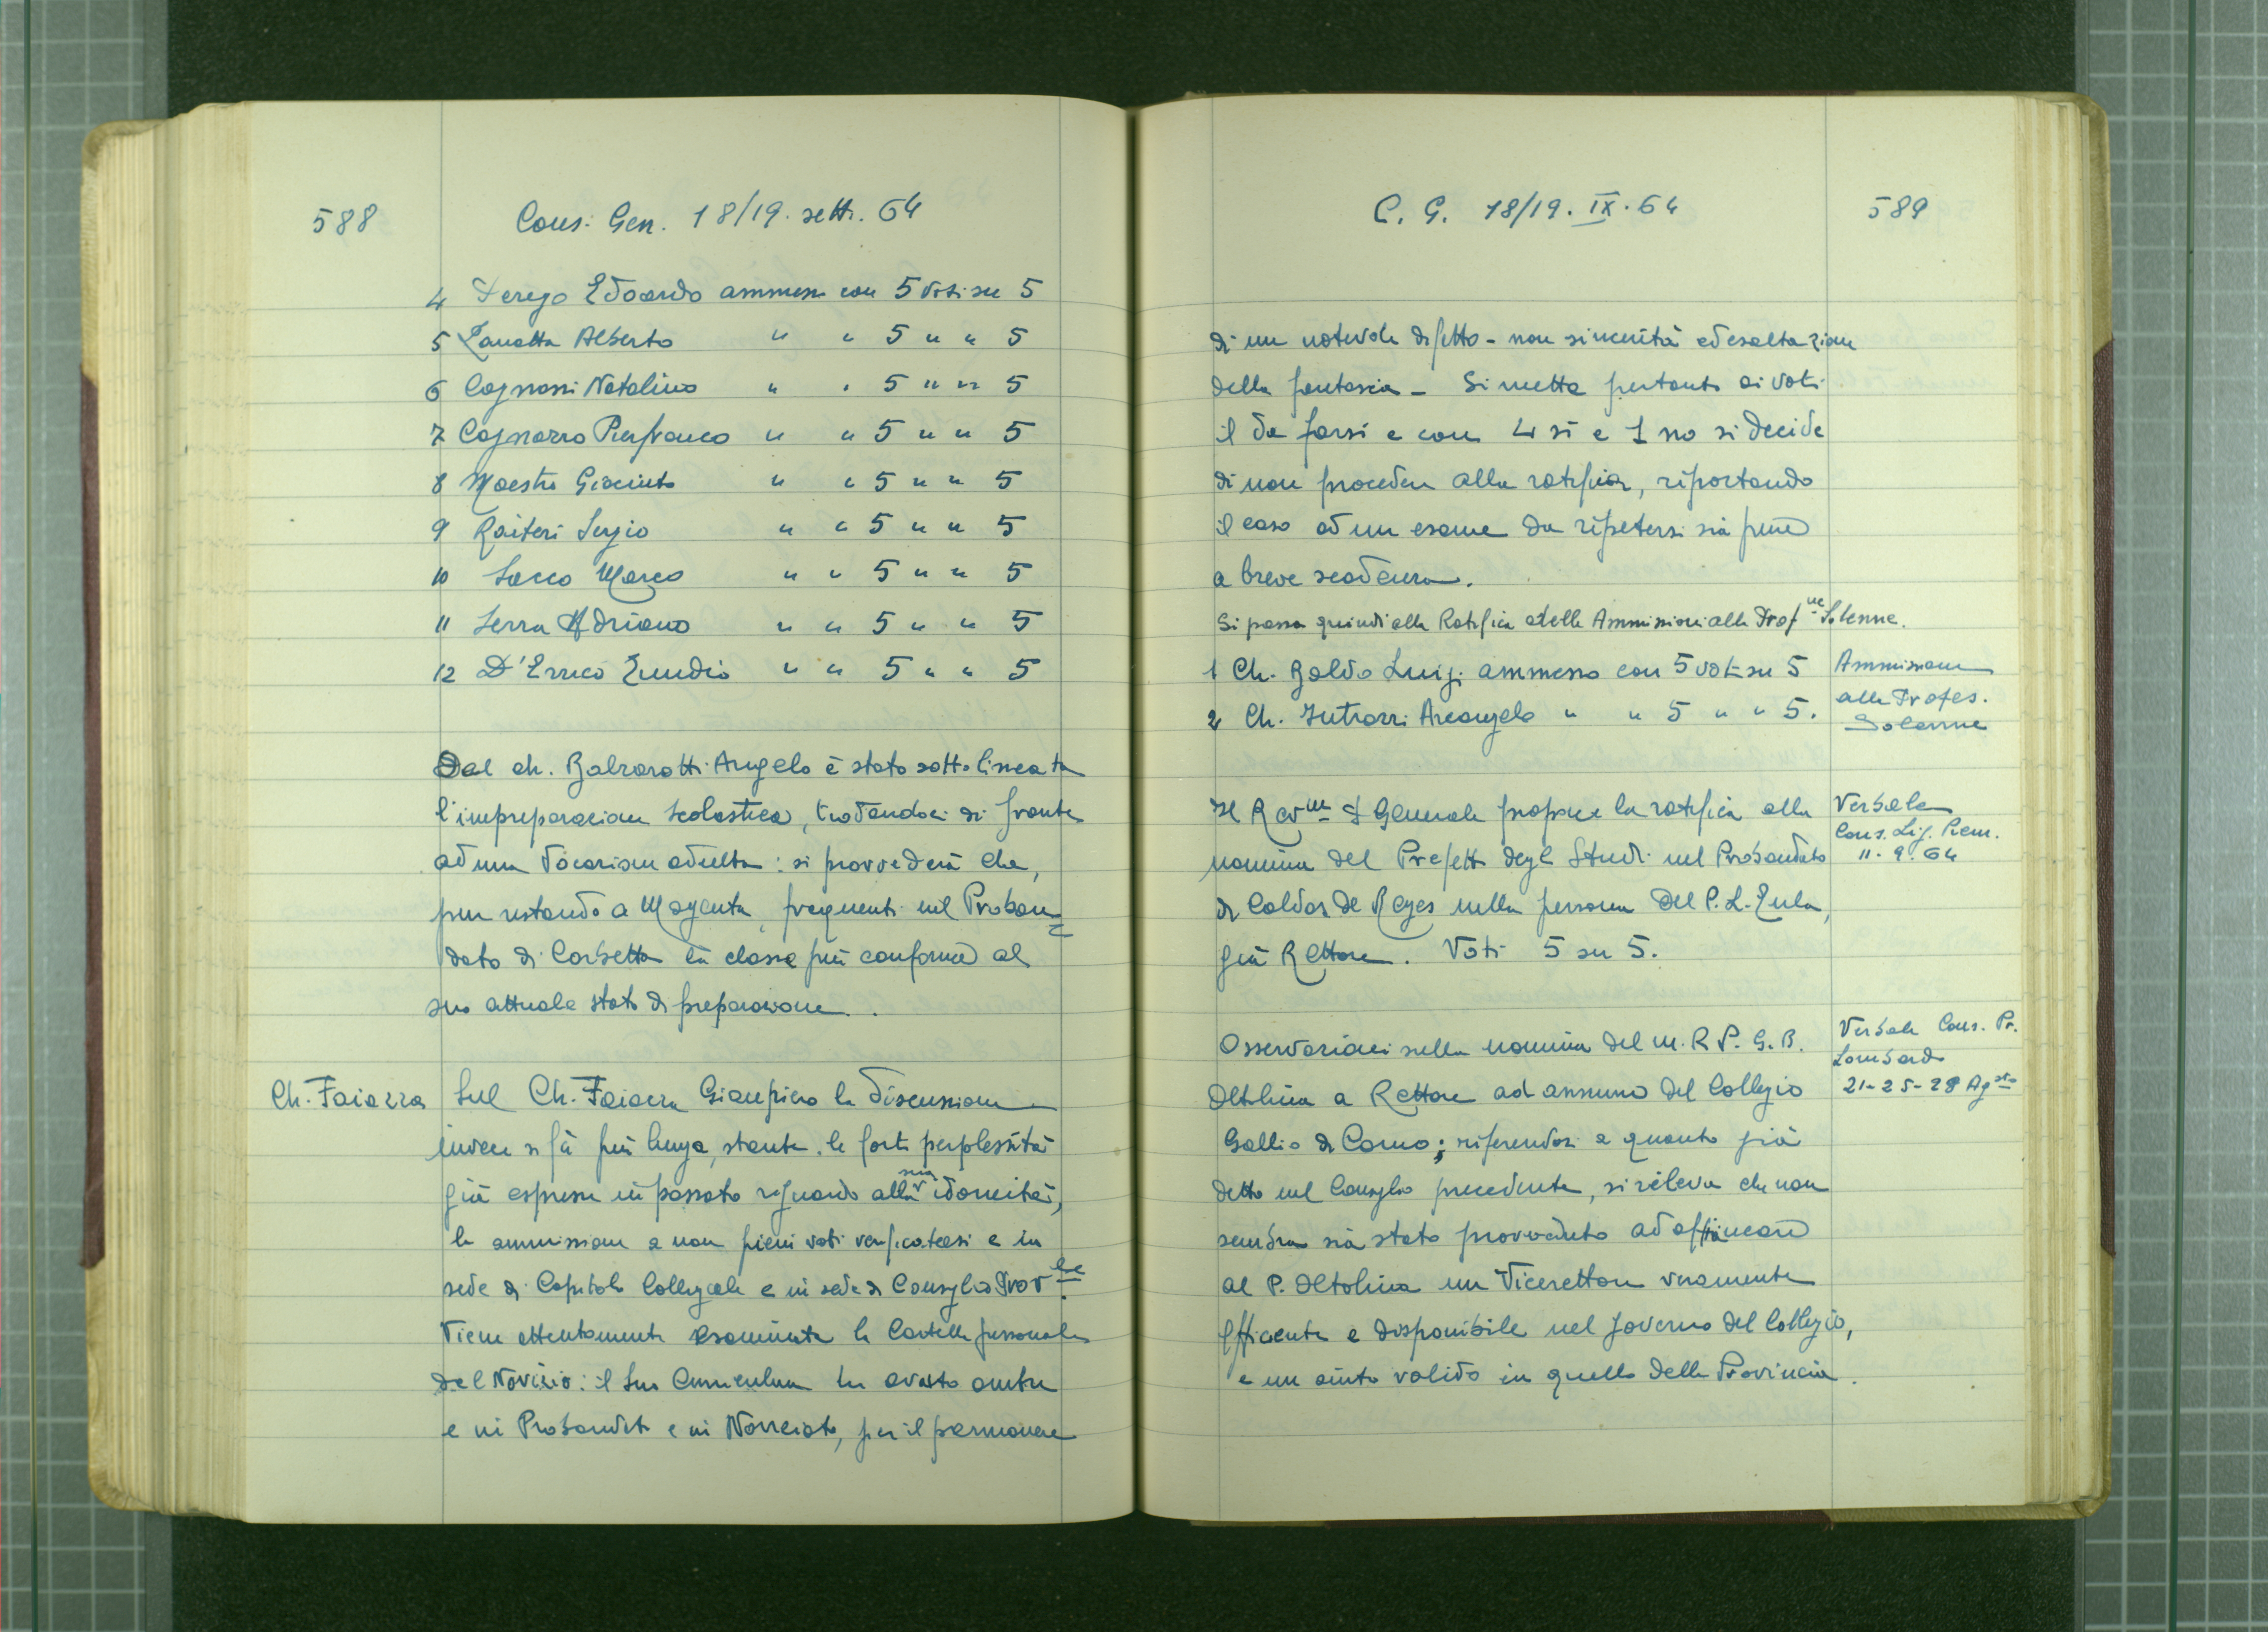 588
Cons. Gen. 18/19. sett. 64
4 Perego Edoardo ammesso con 5 voti su 5
5 Zanotta Alberto " " 5 " " 5
6 Cagnassi Natalino " " 5 " " 5
7 Cagnazzo Pierfranco " " 5 " " 5
8 Maestro Giacinto " " 5 " " 5
9 Raiteri Sergio " " 5 " " 5
10 Sacco Marco " " 5 " " 5
11 Serra Adriano " " 5 " " 5
12 D'Errico " " 5 " " 5
Del ch. Balzarotti Angelo è stato sottolineata
l'impreparazione scolastica, trattandosi di fronte
ad una vocazione adulta: si provvederà che,
pur restando a Magenta, frequenti nel Proban=
dato di Corbetta la classe più conforme al
suo attuale stato di preparazione.
Ch. Faiazza
Sul Ch. Faiazza Gianpiero la discussione
invece si fà più lunga, stante le forti perplessità
già espresse in passato riguardo alla sua idoneità,
la ammissione a non pieni voti verificatasi e in
sede di Capitolo Collegiale e in sede di Consiglio Prov.le
Viene attentamente esaminata la Cartella personale
del Novizio: il suo Curriculum ha avuto ombre
e in Probandato e in Noviziato, per il permanere
C. G. 18/19. IX. 64
589
di un notevole difetto - non sincerità ed esaltazione
della fantasia - Si mette pertanto ai voti
il da farsi e con 4 sì e 1 no si decide
di non procedere alla ratifica, riportando
il caso ad un esame da ripetersi sia pure
a breve scadenza.
Si passa quindi alla Ratifica delle Ammissioni alla Prof.ne Solenne.
1 Ch. Galdo Luigi ammesso con 5 voti su 5
2 Ch. Introzzi Arcangelo " " 5 " " 5.
Ammissione
alla Profes.
Solenne
Il Rev.mo P. Generale propone la ratifica alla
nomina del Prefetto degli Studi nel Probandato
di Caldas de Reyes nella persona del P. L. Zula,
già Rettore. Voti 5 su 5.
Verbale
Cons. Lig. Piem.
11. 9. 64
Osservazioni sulla nomina del M. R. P. G. B.
Oltolina a Rettore ad annum del Collegio
Gallio di Como; riferendosi a quanto già
detto nel Consiglio precedente, si rileva che non
sembra sia stato provveduto ad affiancare
al P. Oltolina un Vicerettore veramente
efficiente e disponibile nel governo del Collegio,
e un aiuto valido in quello della Provincia.
Verbale Cons. Pr.
Lombardo
21-25-28 Ag.sto